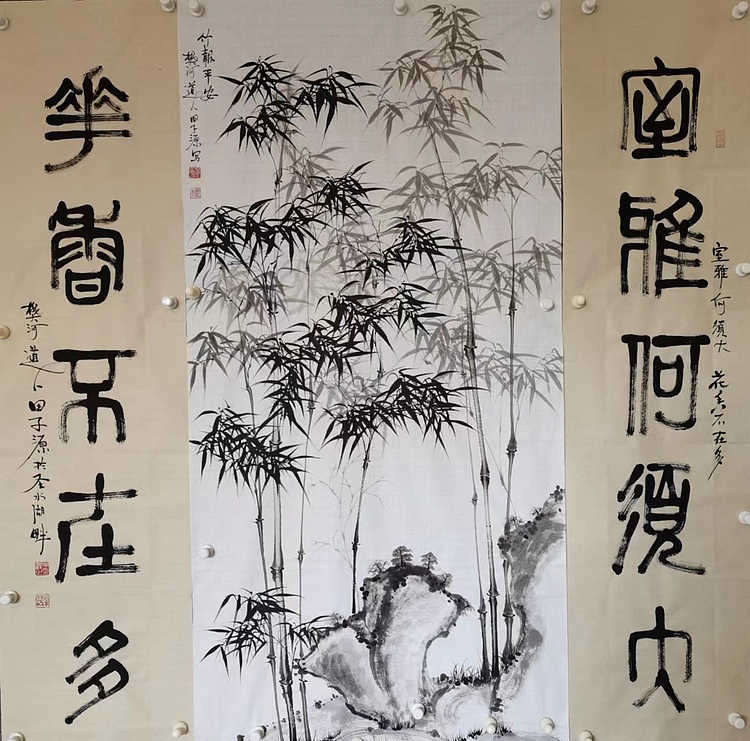 室雅何須大 花香不在多
室雅何須大
竹報平安
樊河道人田子源写
華香不在多
樊河道人田子源於圣水湖畔